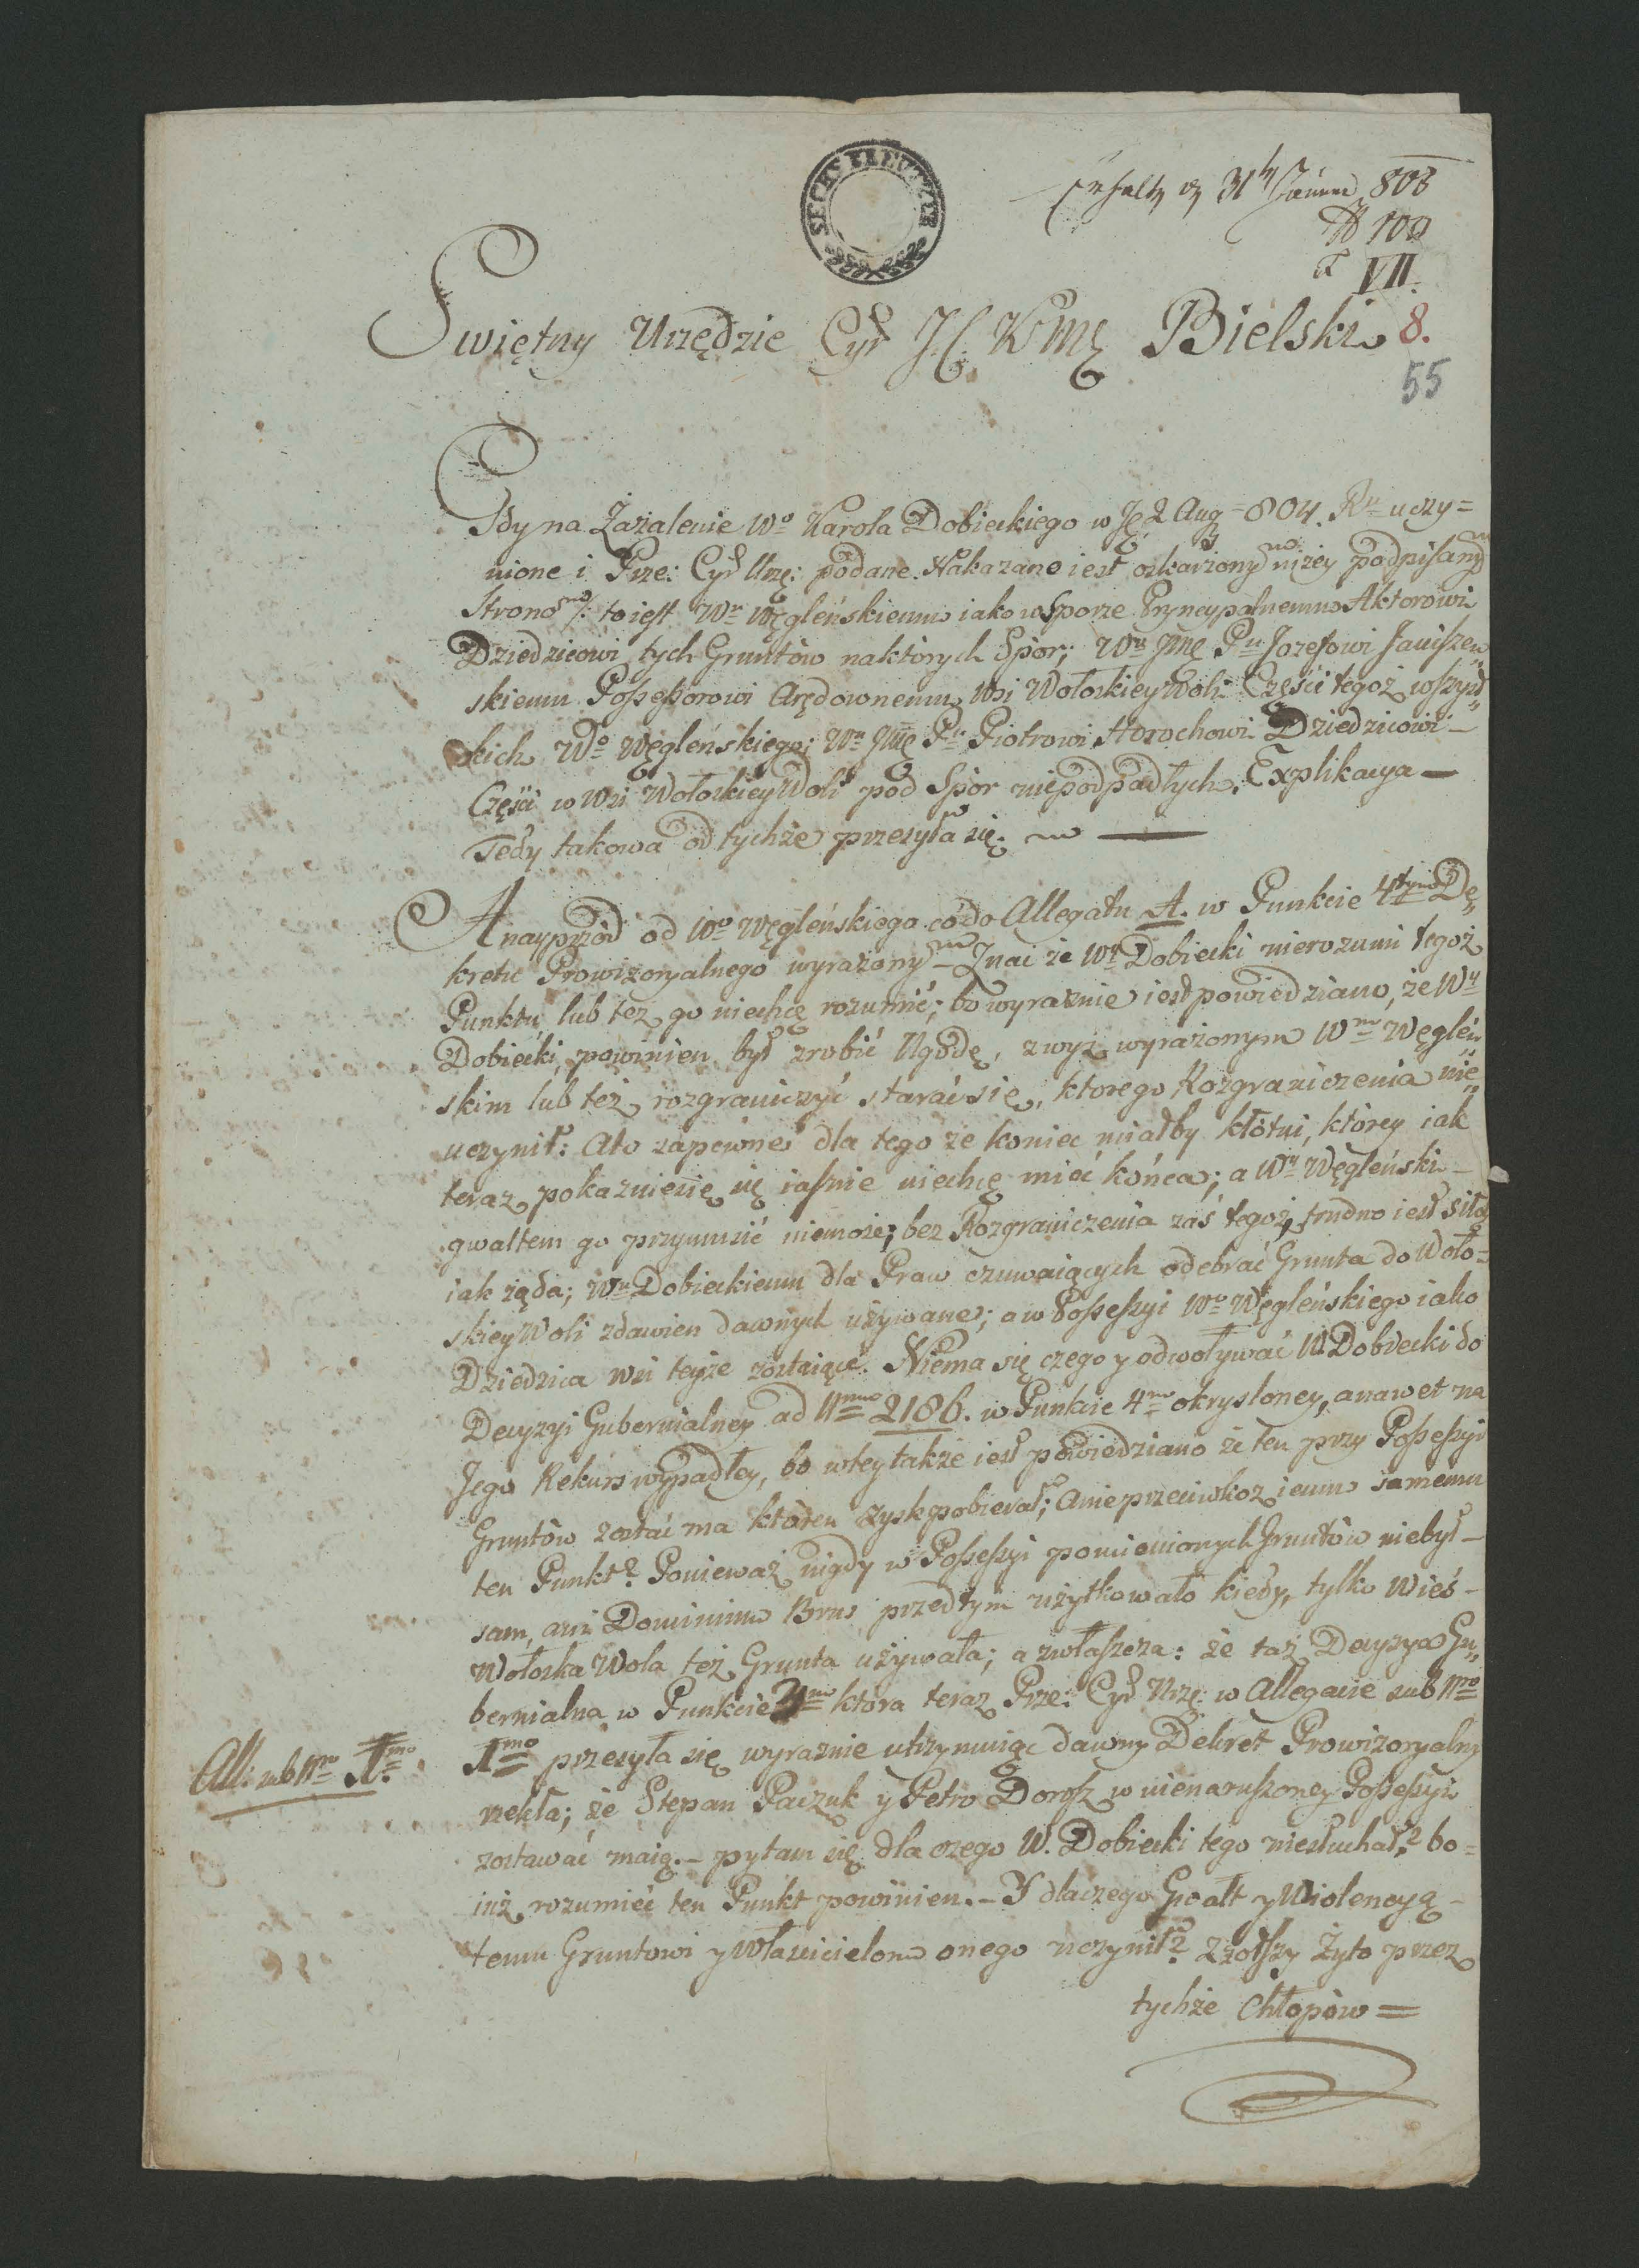 SECHS KREUTZER
31 805
N 100
VII.
Swiętny Urzędzie Cyr: J C K Mę Bielski
8.
55
Gdy na Zażalenie Wo Karola Dobieckiego w 2 Aug = 804. Ru uczy=
nione i Prze: Cyr: Urzę: podane. Nakazane iest oskarżonym niżey podpisanym
Stronom /: to iest Wu Węgleńskiemu iako w Sporze Pryncypalnemu Aktorowi
Dziedzicowi tych Gruntów na których Spór; Wu Jmę Pu Jozefowi Janiszew„
skiemu Possessorowi Arędownemu Wsi Wołoskiey Woli Części tegoż wszyst„
kich Wo Węgleńskiego; Wu Jmę Pu Piotrowi Horochowi Dziedzicowi –
Części w Wsi Wołoskiey Woli pod Spór niepodpadłych. Explikacya —
Tedy takowa od tychże przesyła się. —
A nayprzód od Wo Węgleńskiego co do Allegatu A. w Punkcie 4tym De„
kretu Prowizoryalnego wyrażonym – Znać że Wy Dobiecki nierozumi tegoż
Punktu, lub też go niechcę rozumić; bo wyraznie iest powiedziano, że Wy
Dobiecki powinien był zrobić Ugodę, z wyż wyrażonym Wm Węgleń„
skim lub też rozgraniczyć starać się, ktorego Rozgraniczenia nie„
uczynił: Ato zapewne dla tego że koniec miałby kłótni, którey iak
teraz pokaznieię się iasnie niechcę mieć końca; a Wy Węgleński –
gwałtem go przymusić niemoże; bez Rozgraniczenia zaś tegoż, trudno iest siłą
iak żąda; Wu Dobieckiemu dla Praw czuwaiących odebrać Grunta do Woło=
skiey Woli zdawien dawnych używane; a w Possessyi Wo Węgleńskiego iako
Dziedzica wsi teyże zostaiące. Niema się czego y odwoływać W. Dobiecki do
Decyzyi Gubernialney ad Nrum 2186. w Punkcie 4mo okrysloney, a nawet na
Jego Rekurs wypadłey, bo wtey także iest powiedziano że ten przy Possessyi
Gruntów zostać ma któren zysk pobierał; A nieprzeciwkoż iemu samemu
ten Punkt? Ponieważ nigdy w Possessyi pomienionych Gruntów niebył –
sam, ani Dominium Brus przedtym użytkowało kiedy, tylko Wieś –
Wołoska Wola też Grunta używała; a zwłaszcza: że taż Decyzya Gu„
bernialna w Punkcie mo ktora teraz Prze: Cyr: Urzę: w Allegacie sub Nro
All: sub Nro 1mo.
1mo przesyła się wyraznie utrzymuiąc dawny Dekret Prowizoryalny
rzekła; że Stepan Paczuk y Petro Dorosz w nienaruszoney Possessyi
zostawać maią. – pytam się dla czego W. Dobiecki tego niesłuchał? bo =
iuż rozumieć ten Punkt powinien. – Y dlaczego Gwałt y Wiolencyą –
temu Gruntowi y Właścicielom onego uczynił? Zżołszy Żyto przez
tychże Chłopów =